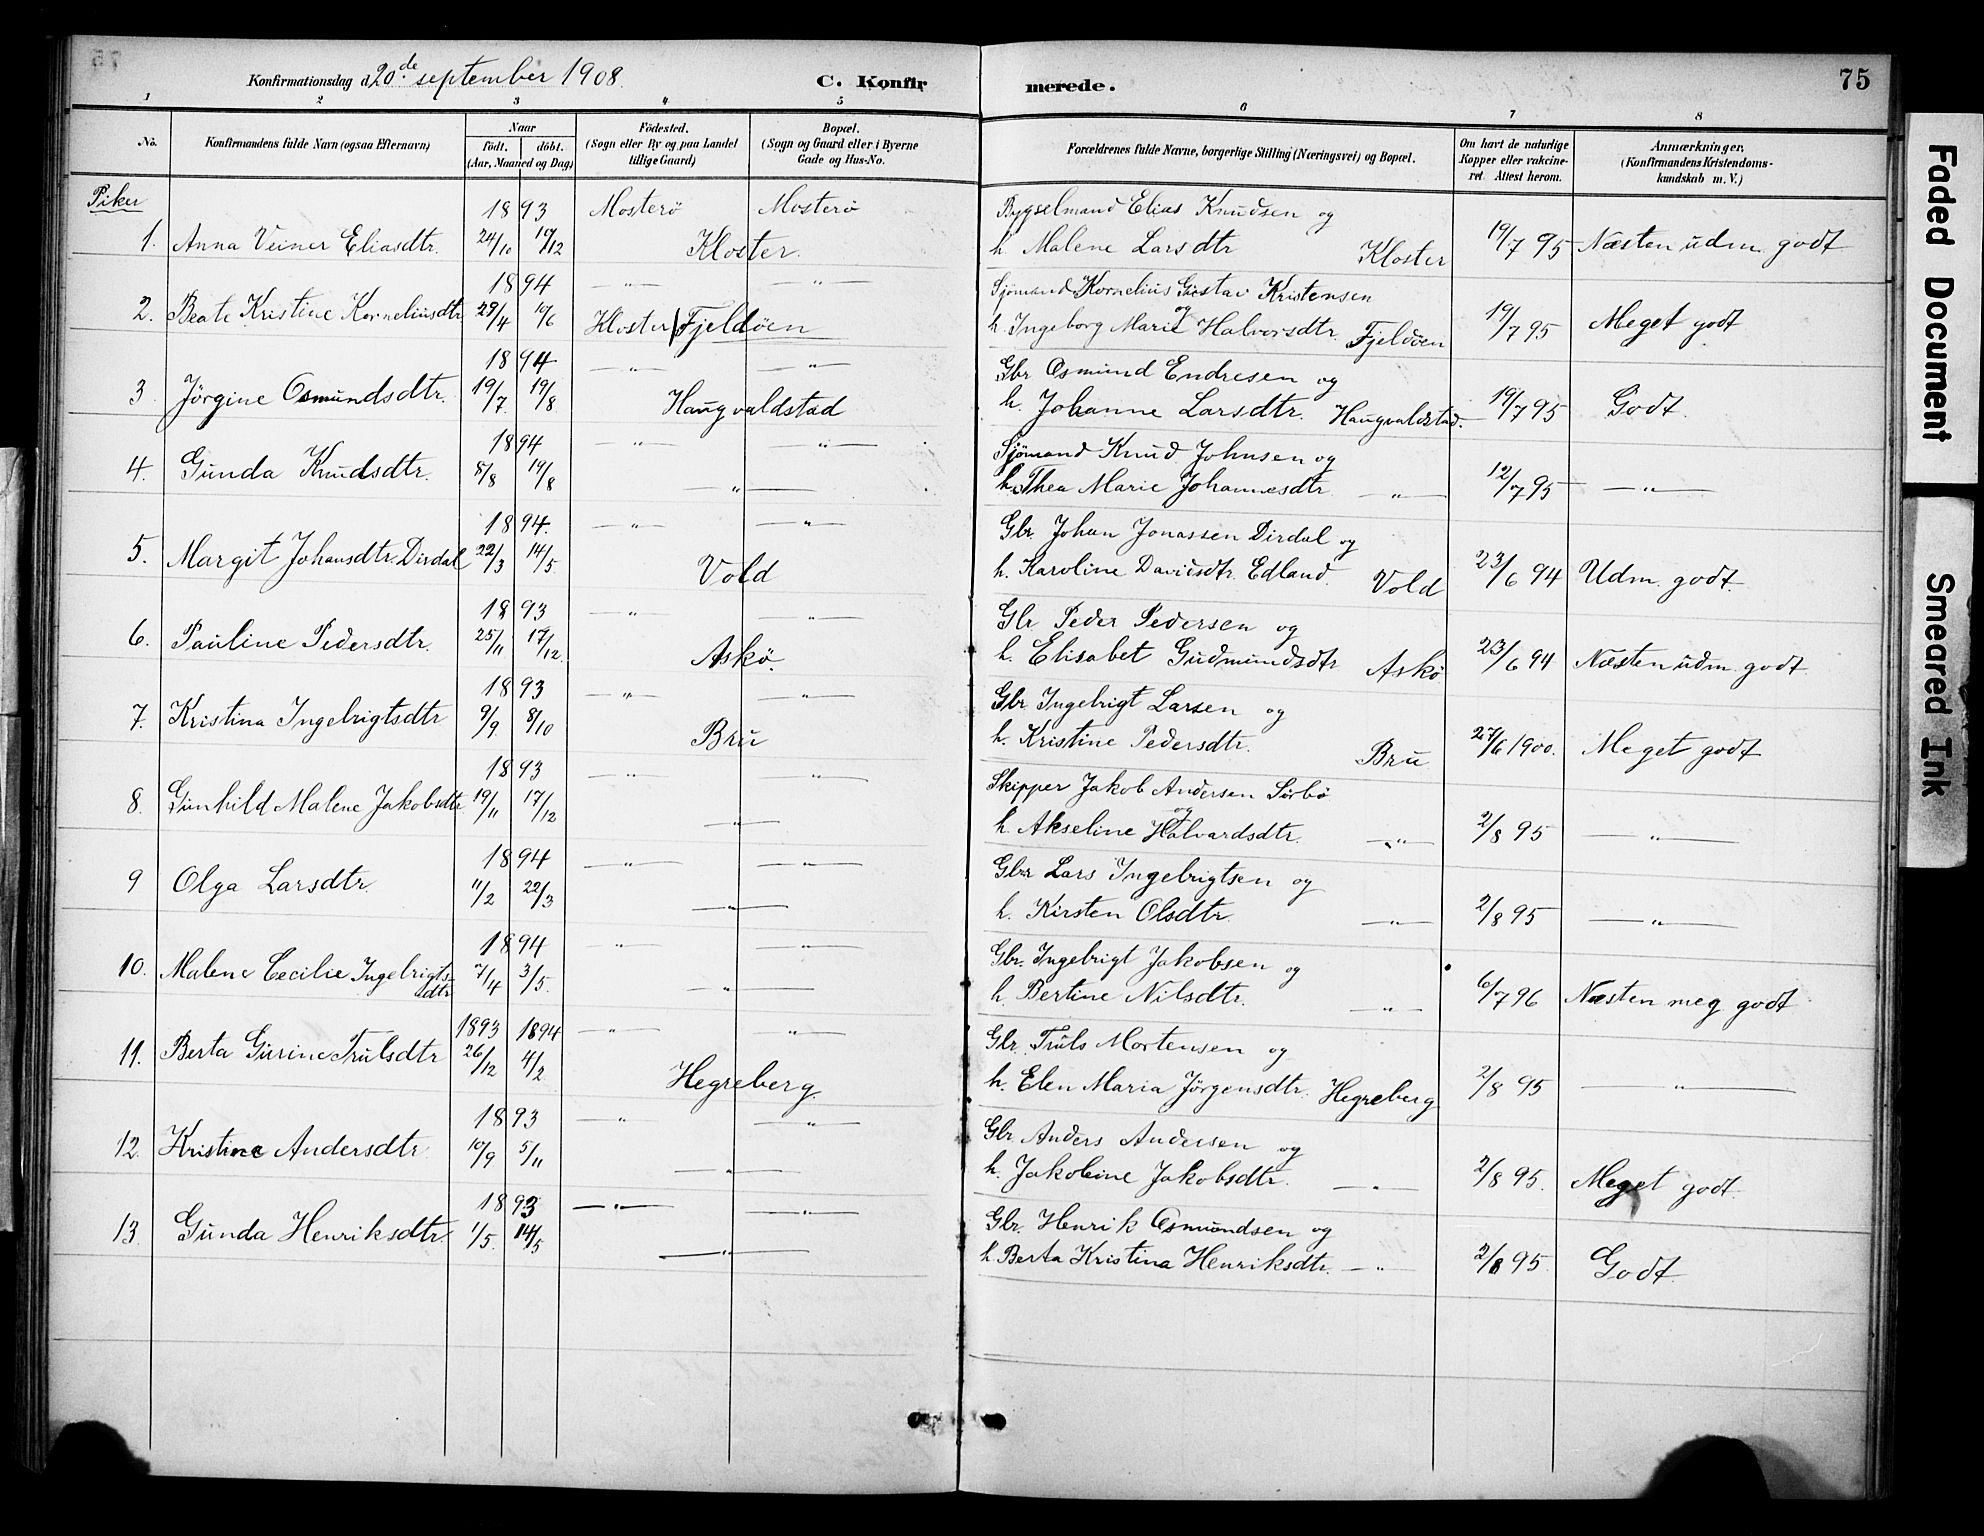 Konfirmationsdag d. 20de september 1908. C. Konfirmerede. 75
1 2 3 4 5 6 7 8
No. Konfirmandens fulde Navn (ogsaa Efternavn) Naar født. døbt. (Aar, Maaned og Dag) Fødested. (Sogn eller By og paa Landet tillige Gaard) Bopæl. (Sogn og Gaard eller i Byerne Gade og Hus-No. Forældrenes fulde Navne, borgerlige Stilling (Næringsvei) og Bopæl. Om havt de naturlige Kopper eller vakcineret. Attest herom. Anmærkninger. (Konfirmandens Kristendomskundskab m. V.)
Piker
1893 Mosterö Mosterö Bygselmand Elias Knudsen og
1. Anna Veiner Eliasdtr. 24/10 10/12 Kloster. h. Malene Larsdtr Kloster 19/7 95 Næsten udm. godt
1894 —„— —„— Sjømand Kornelius Gustav Kristensen og
2. Beate Kristine Korneliusdtr 28/4 10/6 Kloster Fjeldöen h. Ingeborg Marie Halvorsdtr. Fjeldöen 19/7 95 Meget godt
1894 —„— —„— Gbr Osmund Endresen og
3 Jörgine Osmundsdtr. 19/7 19/8 Haugvaldstad h. Johanne Larsdtr. Haugvaldstad. 19/7 95 Godt.
1894 —„— —„— Sjømand Knud Johnsen og
4. Gunda Knudsdtr. 8/8 19/8 —„— h. Thea Marie Johannesdtr —„— 12/7 95 —„—
1894. —„— —„— Gbr. Johan Jonassen Dirdal og
5. Margit Johansdtr. Dirdal 22/3 14/5 Vold h. Karoline Davidsdtr. Edland. Vold 23/6 94 Udm. godt.
1893 —„— —„— Gbr Peder Pedersen og
6. Pauline Pedersdtr. 25/11 17/12. Askö. h. Elisabet Gudmundsdtr Askö 23/6 94 Næsten udm. godt
1893 —„— —„— Gbr Ingebrigt Larsen og
7. Kristina Ingebrigtsdtr 9/9 8/10 Bru h. Kristine Pedersdtr. Bru 27/6 1900. Meget godt
1893 —„— —„— Skipper Jakob Andersen Sörbö og
8. Gunhild Malene Jakobsdtr 19/11 17/12 —„— h. Akseline Halvardsdtr. —„— 2/8 95 —„—
1894 —„— —„— Gbr Lars Ingebrigtsen og
9 Olga Larsdtr. 11/2 22/3 —„— h. Kirsten Olsdtr. —„— 2/8 95 —„—
1894 —„— —„— Gbr. Ingebrigt Jakobsen og
10. Malene Cecilie Ingebrigtsdtr 7/4 3/5. —„— h. Bertine Nilsdtr. —„— 6/7 96 Næsten meg godt
1893 1894 —„— —„— Gbr. Truls Mortensen og
11. Berta Gurine Trulsdtr 26/12 4/2 Hegreberg. h. Elen Maria Jörgensdtr. Hegreberg 2/8 95 —„—
1893 —„— —„— Gbr Anders Andersen og
12. Kristine Andersdtr. 10/9 5/11 —„— h. Jakobine Jakobsdtr. —„— 2/8 95. Meget godt.
1893 —„— —„— Gbr. Henrik Osmundsen og
13. Gunda Henriksdtr. 1/5. 14/5 —„— h. Berta Kristina Henriksdtr. —„— 2/8 95. Godt
Faded Document
Smeared Ink